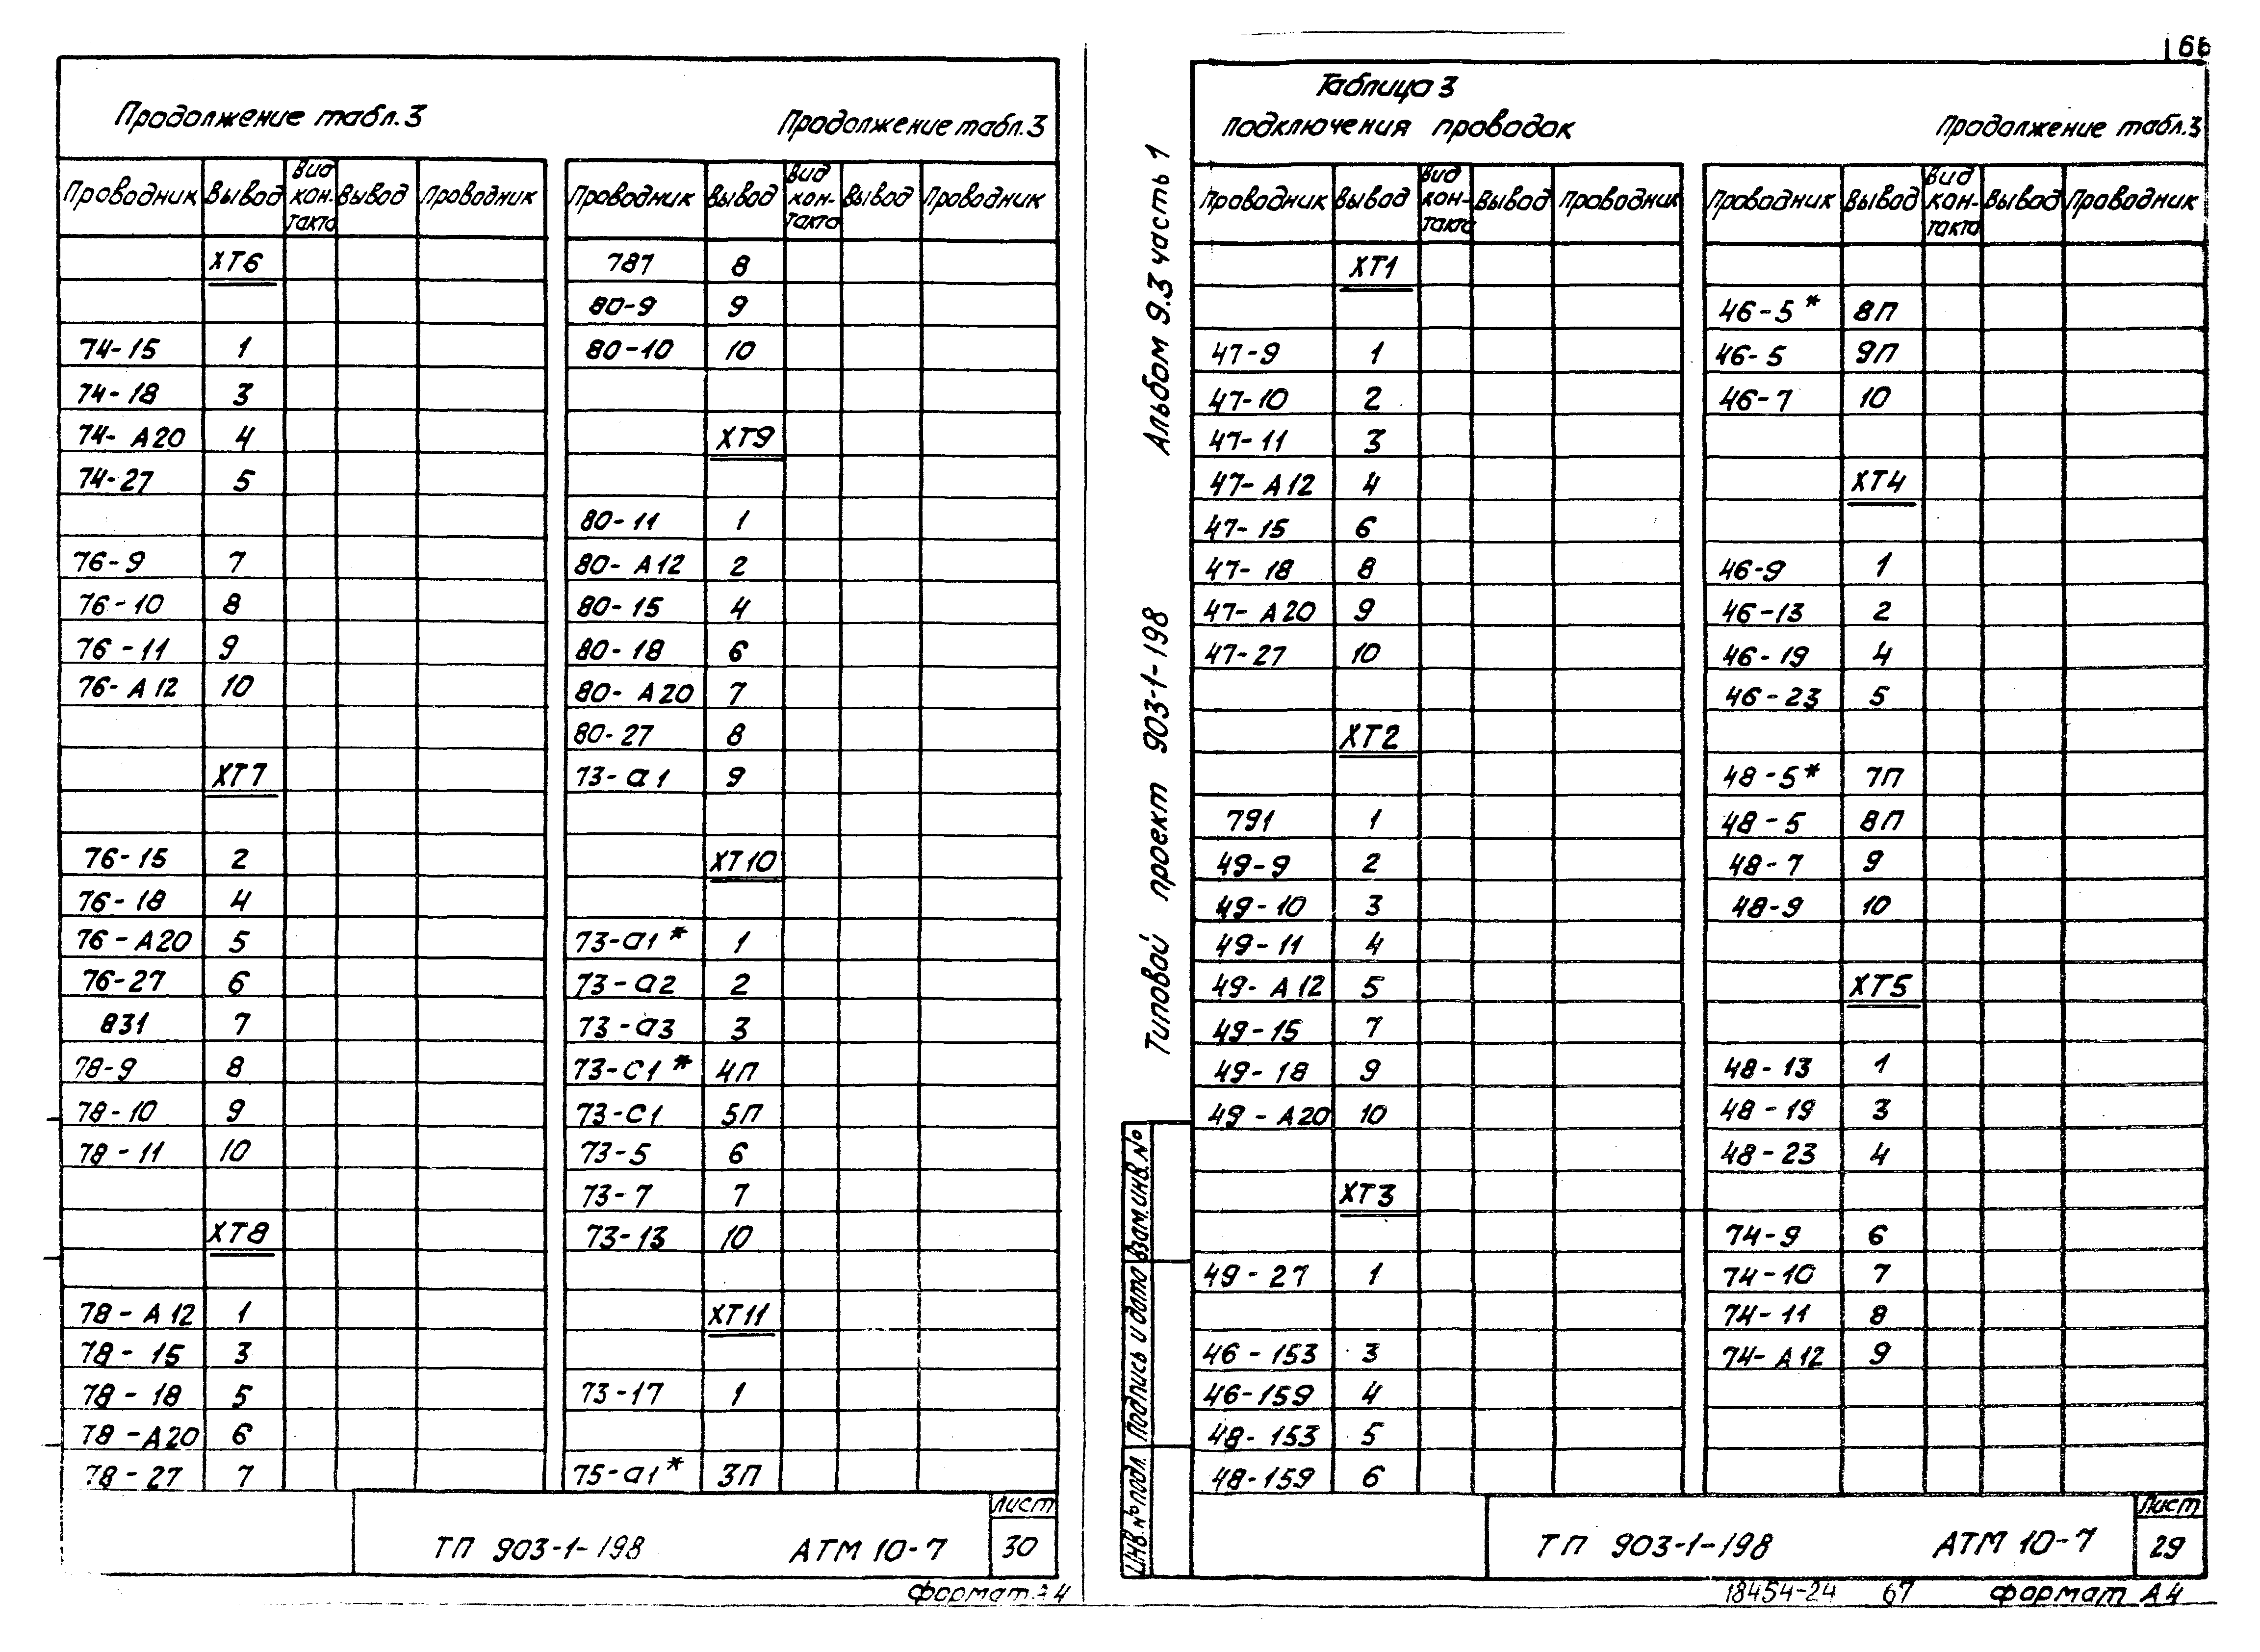 Продолжение табл.3
Продолжение табл.3
Проводник Вывод Вид кон-такта Вывод Проводник
ХТ6
74-15 1
74-18 3
74-А20 4
74-27 5
76-9 7
76-10 8
76-11 9
76-А12 10
ХТ7
76-15 2
76-18 4
76-А20 5
76-27 6
831 7
78-9 8
78-10 9
78-11 10
ХТ8
78-А12 1
78-15 3
78-18 5
78-А20 6
78-27 7
Проводник Вывод Вид кон-такта Вывод Проводник
787 8
80-9 9
80-10 10
ХТ9
80-11 1
80-А12 2
80-15 4
80-18 6
80-А20 7
80-27 8
73-а1 9
ХТ10
73-а1* 1
73-а2 2
73-а3 3
73-С1* 4П
73-С1 5П
73-5 6
73-7 7
73-13 10
ХТ11
73-17 1
75-а1* 3П
ТП 903-1-198 АТМ 10-7
Лист
30
Формат А4
66
Альбом 9.3 часть 1
Типовой проект 903-1-198
Таблица 3
подключения проводок
Продолжение табл.3
Проводник Вывод Вид кон-такта Вывод Проводник
ХТ1
47-9 1
47-10 2
47-11 3
47-А12 4
47-15 6
47-18 8
47-А20 9
47-27 10
ХТ2
791 1
49-9 2
49-10 3
49-11 4
49-А12 5
49-15 7
49-18 9
49-А20 10
ХТ3
49-27 1
46-153 3
46-159 4
48-153 5
48-159 6
Проводник Вывод Вид кон-такта Вывод Проводник
46-5* 8П
46-5 9П
46-7 10
ХТ4
46-9 1
46-13 2
46-19 4
46-23 5
48-5* 7П
48-5 8П
48-7 9
48-9 10
ХТ5
48-13 1
48-19 3
48-23 4
74-9 6
74-10 7
74-11 8
74-А12 9
Взам.инв.№
Подпись и дата
Инв.№подл.
ТП 903-1-198 АТМ 10-7
Лист
29
18454-24 67 Формат А4